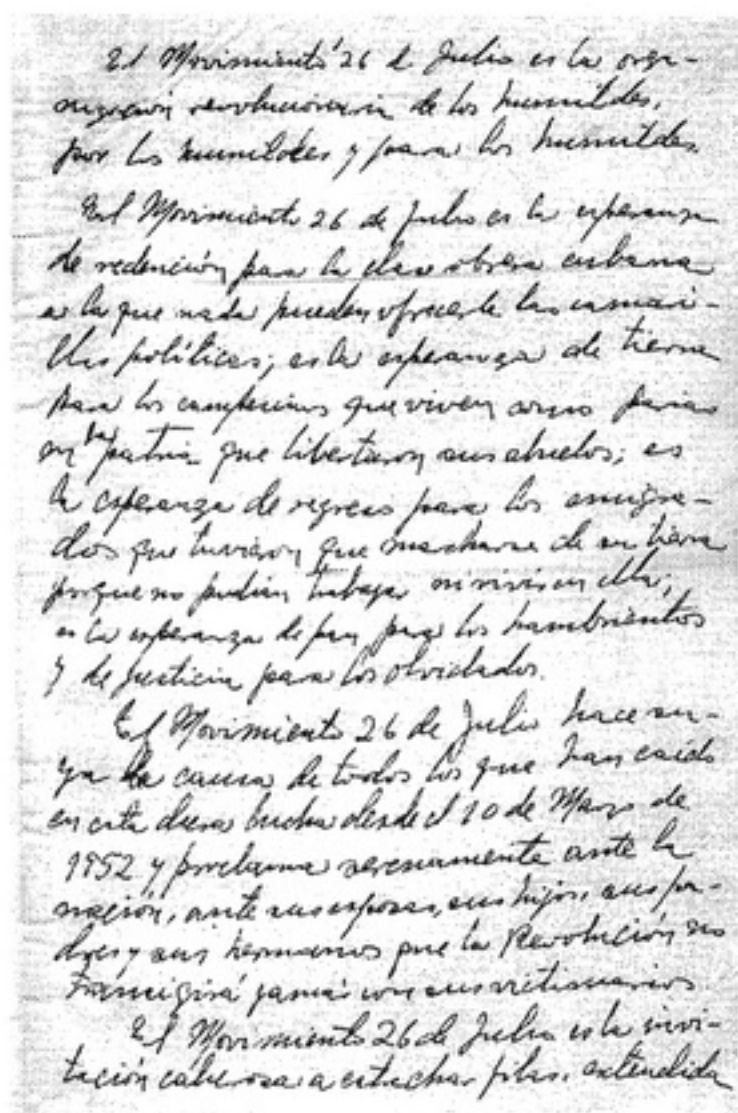 El Movimiento 26 de Julio es la orga-
nización revolucionaria de los humildes,
por los humildes y para los humildes.
El Movimiento 26 de Julio es la esperanza
de redención para la clase obrera cubana
a la que nada pueden ofrecerle las camari-
llas políticas; es la esperanza de tierra
para los campesinos que viven como parias
en la patria que libertaron sus abuelos; es
la esperanza de regreso para los emigra-
dos que tuvieron que marcharse de su tierra
porque no podían trabajar ni vivir en ella;
es la esperanza de pan para los hambrientos
y de justicia para los olvidados.
El Movimiento 26 de Julio hace su-
ya la causa de todos los que han caído
en esta dura lucha desde el 10 de Marzo de
1952 y proclama serenamente ante la
nación, ante sus esposas, sus hijos, sus pa-
dres y sus hermanos que la Revolución no
transigirá jamás con sus victimarios.
El Movimiento 26 de Julio es la invi-
tación calurosa a estrechar filas, extendida